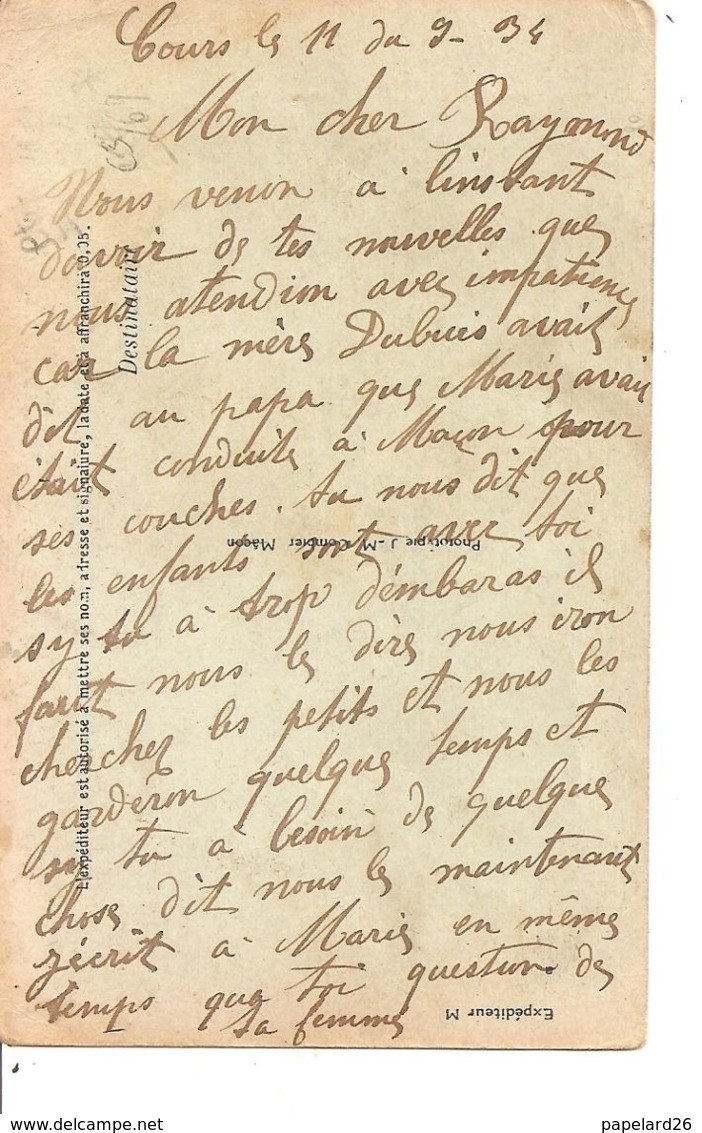 Cours le 11 du 9- 34
Mon cher Raymond
Nous venon a linstant
davoir de tes nouvelles que
nous atendion avec impatience
car la mère Dubuis avait
dit au papa que Marie avait
était conduite à Macon pour
ses couches. tu nous dit que
les enfants sont avec toi
sy tu à trop démbaras il
faut nous le dire nous iron
cherchez les petits et nous les
garderon quelque temps et
sy tu à besoin de quelque
chose dit nous le maintenant
jécrit à Marie en même
temps que toi question de
ta femme
L'expéditeur est autorisé à mettre ses nom, adresse et signature, la date et à affranchir à 0,05.
Destinataire
Phototypie J.-M. Combier Mâcon
Expéditeur M
papelard26